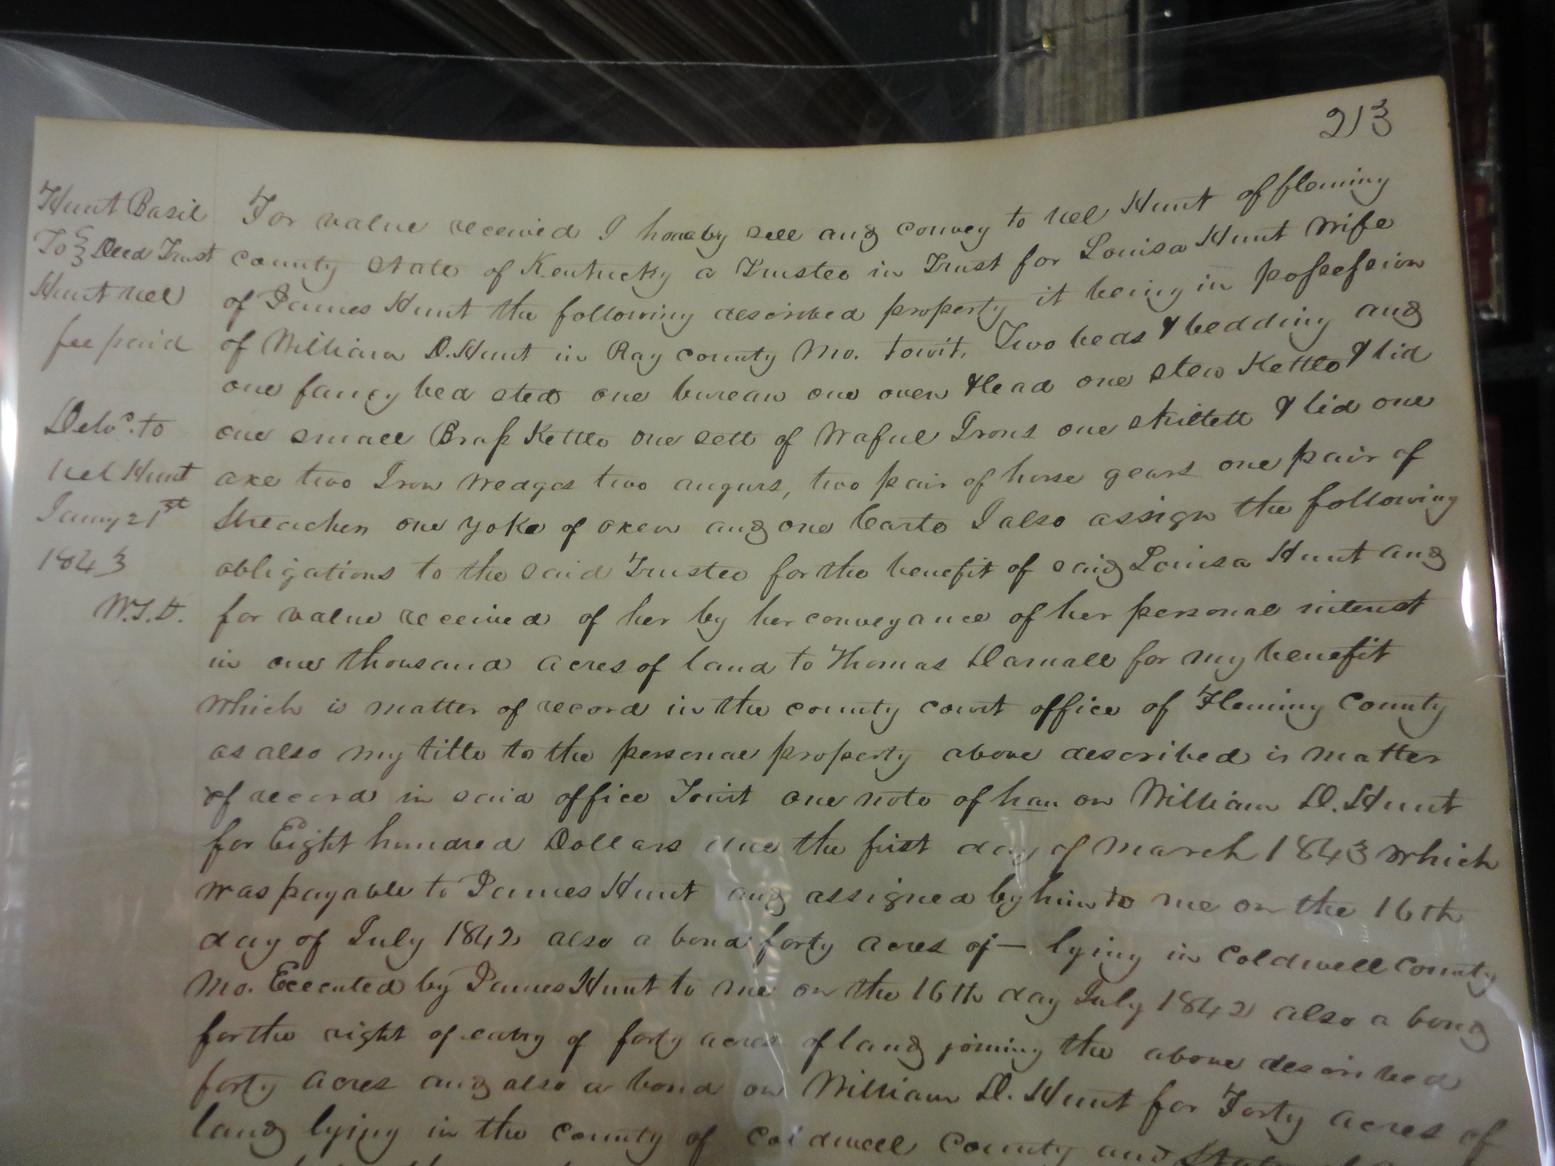 213
Hunt Basil
To } Deed Trust
Hunt uel
fee paid
Delvd. to
uel Hunt
Jany 21st
1843
W.T.D.
For value received I hereby sell and convey to uel Hunt of fleming
county state of Kentucky a Trustee in Trust for Louisa Hunt Wife
of James Hunt the following described property it being in possession
of William D. Hunt in Ray county Mo. towit, Two beds & bedding and
one fancy bed sted one bureau one oven & lead one stew Kettle & lid
one small Brass Kettle one sett of Waful Irons one skillett & lid one
axe two Iron Wedges two augurs, two pair of horse gears one pair of
Streachers one yoke of oxen and one Carte I also assign the following
obligations to the said Trustee for the benefit of said Louisa Hunt and
for value received of her by her conveyance of her personal interest
in one thousand acres of land to Thomas Darnall for my benefit
which is matter of record in the county court office of Fleming County
as also my title to the personal property above described is matter
of record in said office Towit one note of han on William D. Hunt
for Eight hundred Dollars due the first day of March 1843 which
was payable to James Hunt and assigned by him to me on the 16th
day of July 1842 also a bond forty acres of — lying in Coldwell County
Mo. Executed by James Hunt to me on the 16th day July 1842 also a bond
for the right of entry of forty acres of land joining the above described
forty acres and also a bond on William D. Hunt for Forty acres of
land lying in the county of Coldwell County and